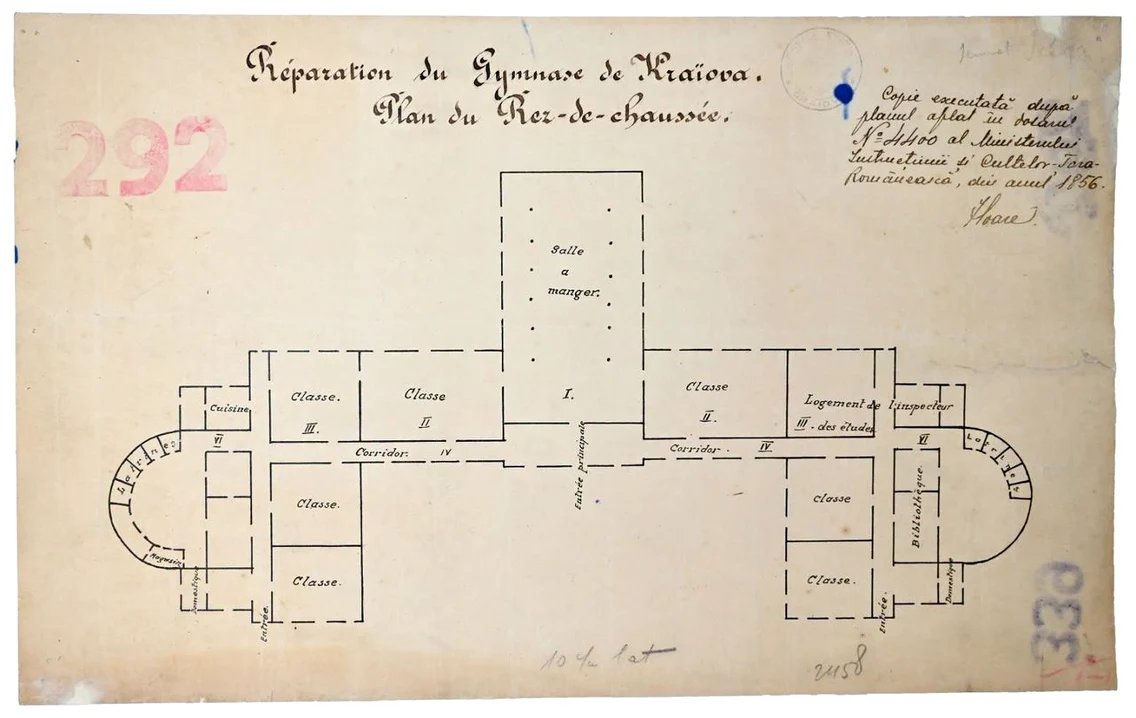 Réparation du Gymnase de Kraïova.
Plan du Rez-de-chaussée.
292
Copie executată după
planul aflat în dosarul
Nº 4400 al Ministerului
Instrucțiunii și Cultelor-Țara-
Românească, din anul 1856.
Salle
a
manger.
I.
Classe.
III.
Classe
II
Classe
II.
Logement de l'inspecteur
III. des études
Cuisine
VI
VI
Latrines
Latrines
Corridor. IV
Entrée principale
Corridor. IV
Classe.
Classe
Bibliothèque.
Magasin
Classe.
Classe.
Domestique
Domestique
Entrée.
Entrée.
338
10 lat
2458